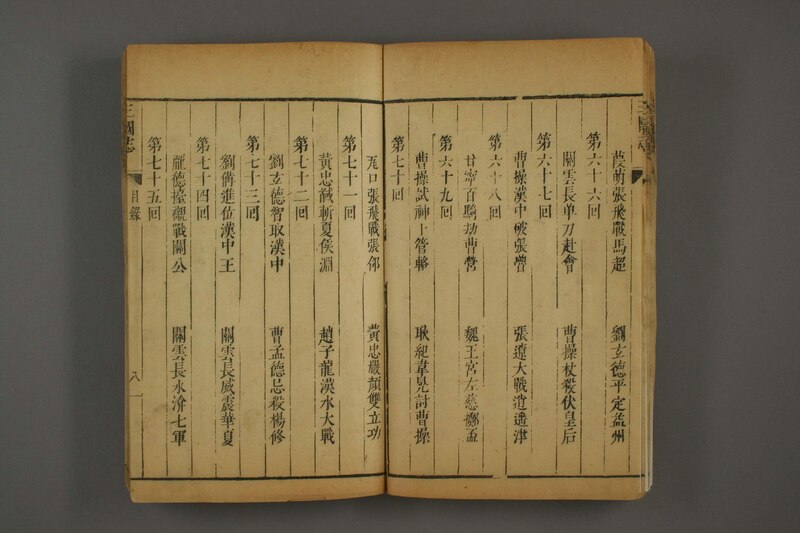 三國志
葭萌張飛戰馬超　劉玄德平定益州
第六十六回
關雲長单刀赴會　曹操杖殺伏皇后
第六十七回
曹操漢中破張魯　張遼大戰逍遥津
第六十八回
甘寧百騎劫曹營　魏王宮左慈擲盃
第六十九回
曹操試神卜管輅　耿紀韋晃討曹操
第七十回
瓦口張飛戰張郃　黄忠嚴顔雙立功
第七十一回
黄忠馘斬夏侯淵　趙子龍漢水大戰
第七十二回
劉玄德智取漢中　曹孟德忌殺楊修
第七十三回
劉備進位漢中王　關雲長威震華夏
第七十四回
龐德擡櫬戰關公　關雲長水渰七軍
第七十五回
三國志　目錄　八